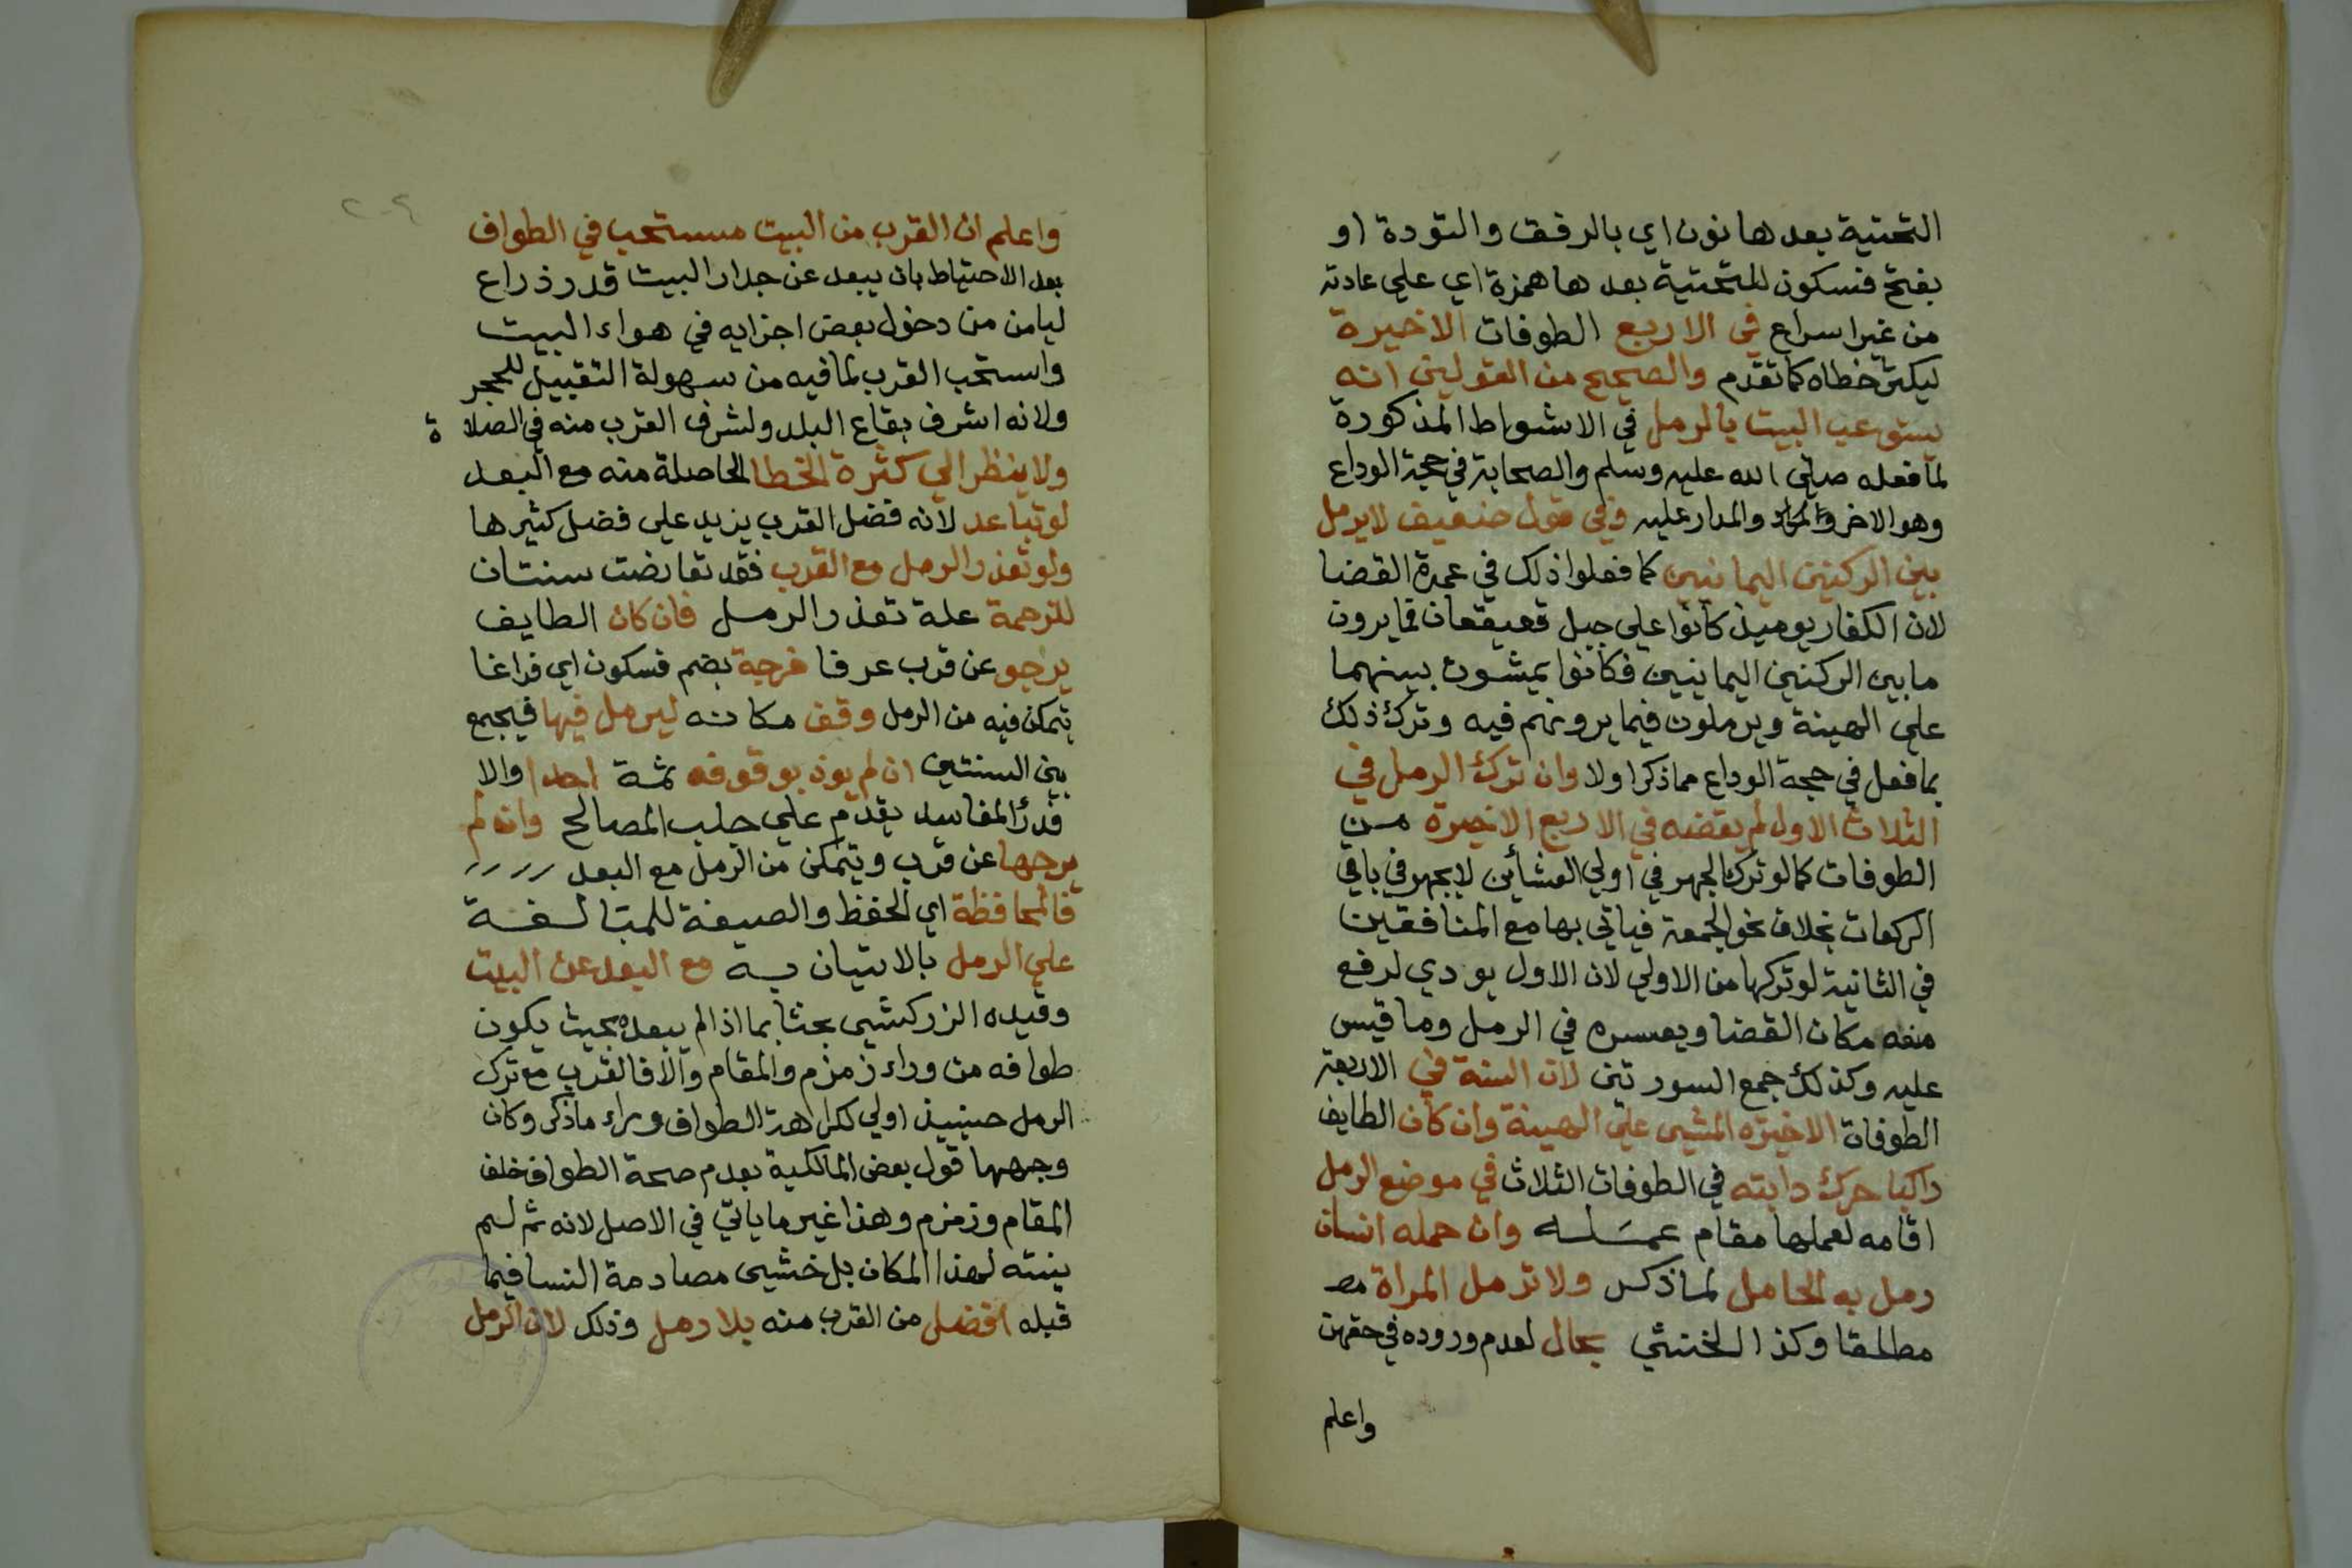 التحتية بعدها نون اي بالرفق والتودة او
بفتح فسكون للتحتية بعدها همزة اي علي عادته
من غير اسراع في الاربع الطوفات الاخيرة
ليكثر خطاه كما تقدم والصحيح من القولين انه
يستوعب البيت بالرمل في الاشواط المذكورة
لما فعله صلي الله عليه وسلم والصحابة في حجة الوداع
وهو الاخر والمراد والمدار عليه وفي قول ضعيف لا يرمل
بين الركنين اليمانيين كما فعلوا ذلك في عمرة القضا
لان الكفار يوميذ كانوا علي جبل قعيقعان فما يرون
ما بين الركنين اليمانيين فكانوا يمشون بينهما
علي الهينة ويرملون فيما يرونهم فيه وترك ذلك
بما فعل في حجة الوداع مما ذكر اولا وان ترك الرمل في
الثلاث الاول لم يقضه في الاربع الاخيرة من
الطوفات كما لو ترك الجهر في اولي العشائين لا يجهر في باقي
الركعات بخلاف نحو الجمعة فياتي بها مع المنافقين
في الثانية لو تركها من الاولي لان الاول يودي لرفع
صفه مكان القضا ويعسره في الرمل وما قيس
عليه وكذلك جمع السورتين لان السنة في الاربعة
الطوفات الاخيره المشي علي الهينة وان كان الطايف
راكبا حرك دابته في الطوفات الثلاث في موضع الرمل
اقامه لعملها مقام عمله وان حمله انسان
رمل به الحامل لما ذكر ولا ترمل المراة مط
مطلقا وكذا الخنثي بحال لعدم وروده في حقهن
واعلم
٢٠٤
واعلم ان القرب من البيت مستحب في الطواف
بعد الاحتياط بان يبعد عن جدار البيت قدر ذراع
ليامن من دخول بعض اجزايه في هواء البيت
واستحب القرب لما فيه من سهولة التقبيل للحجر
ولانه اشرف بقاع البلد ولشرف القرب منه في الصلاة
ولا ينظر الي كثرة الخطا الحاصلة منه مع البعد
لو تباعد لانه فضل القرب يزيد علي فضل كثيرها
ولو تعذر الرمل مع القرب فقد تعارضت سنتان
للزحمة علة تعذر الرمل فان كان الطايف
يرجو عن قرب عرفا فرجة بضم فسكون اي فراغا
يتمكن فيه من الرمل وقف مكانه ليرمل فيها فيجمع
بين السنتين ان لم يوذ بوقوفه ثمة احدا والا
فدرأ المفاسد يقدم علي جلب المصالح وان لم
يرجها عن قرب ويتمكن من الرمل مع البعد
فالمحافظة اي الحفظ والصيغة للمبالغة
علي الرمل بالاتيان به مع البعد عن البيت
وقيده الزركشي بحثا بما اذا لم يبعد بحيث يكون
طوافه من وراء زمزم والمقام والا فالقرب مع ترك
الرمل حينيذ اولي لكراهة الطواف وراء ما ذكر وكان
وجهها قول بعض المالكية بعدم صحة الطواف خلف
المقام وزمزم وهذا غير ما ياتي في الاصل لانه ثم لم
ينته لهذا المكان بل خشي مصادمة النسا فيما
قبله افضل من القرب منه بلا رمل وذلك لان الرمل